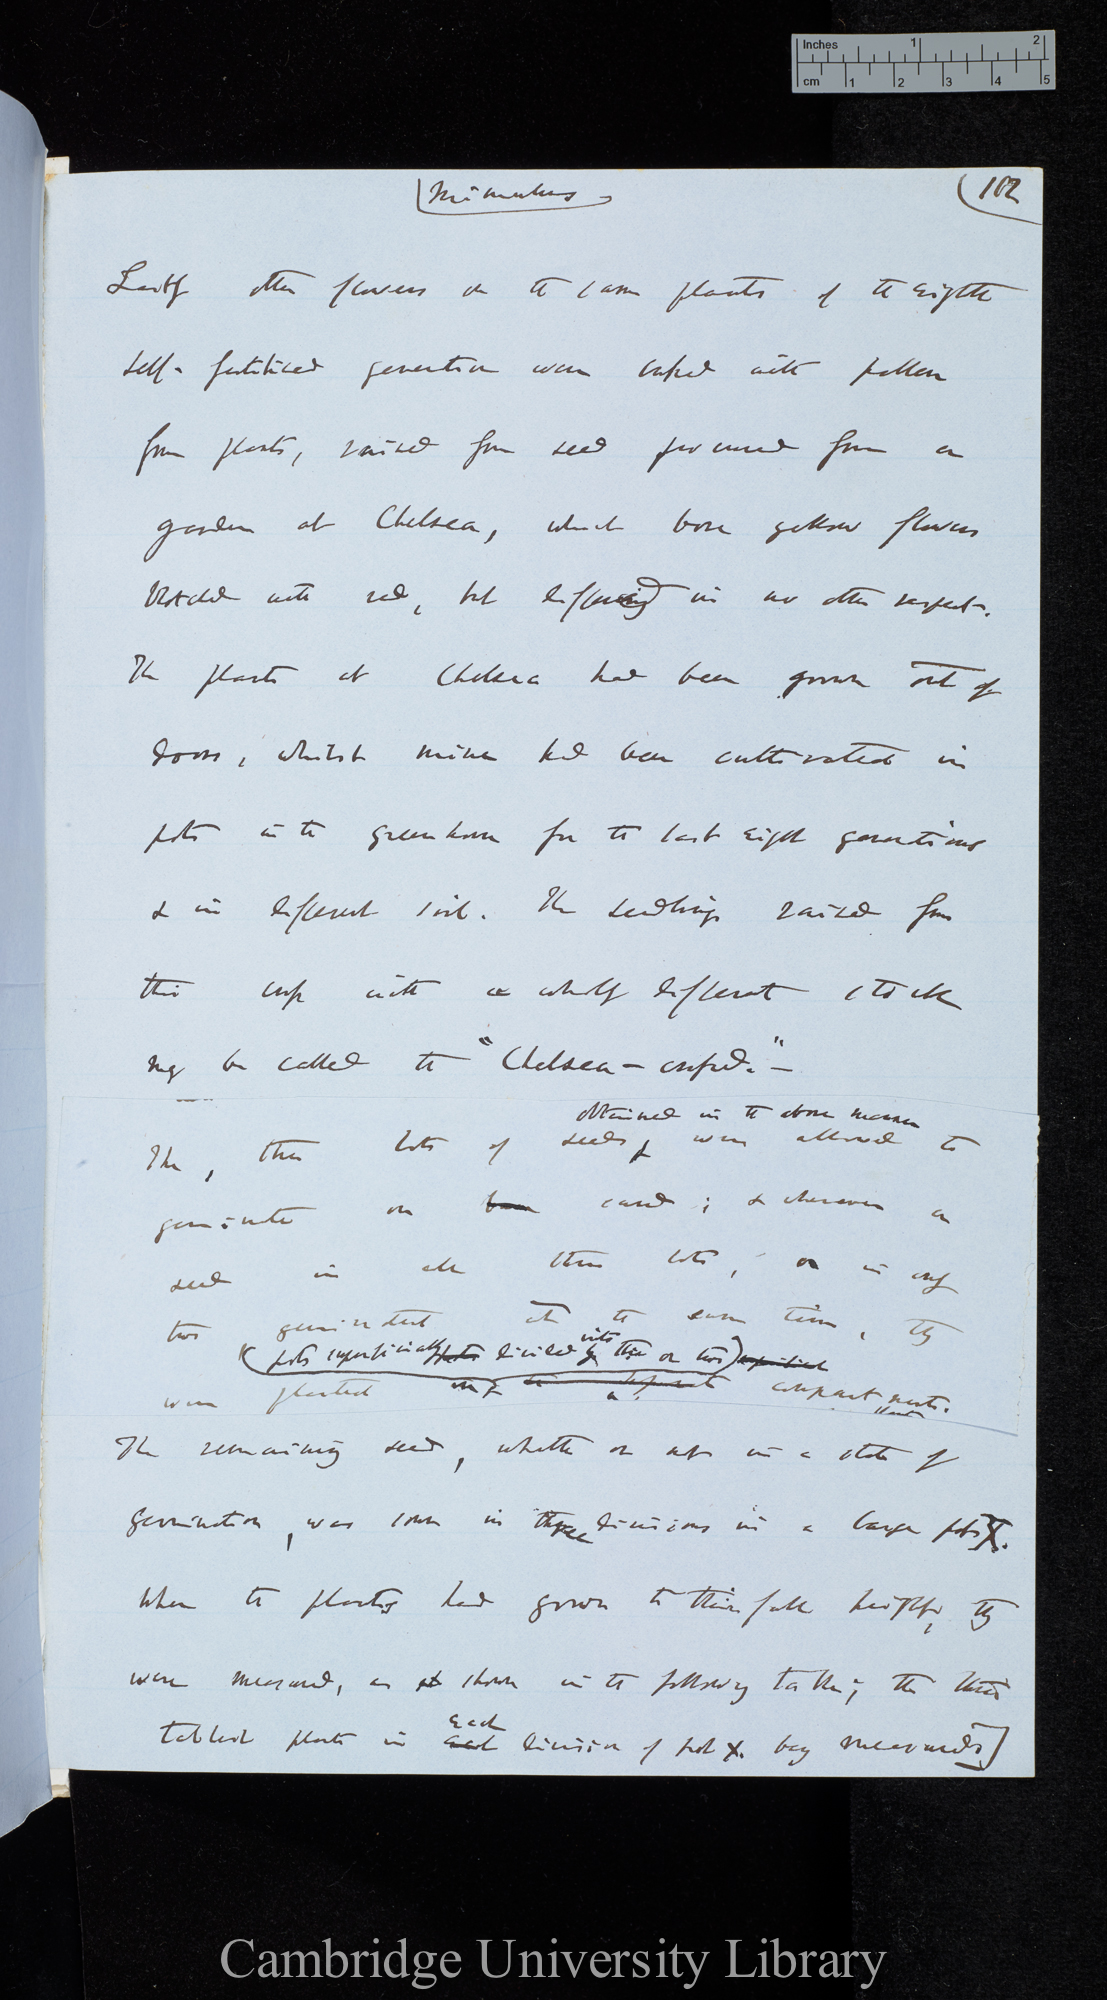 Inches 1 2
cm 1 2 3 4 5
Mimulus
102
Lastly other flowers on the same plants of the eighth
self-fertilised generation were crossed with pollen
from plants, raised from seed procured from a
garden at Chelsea, which bore yellow flowers
blotched with red, but differing in no other respect.
The plants at Chelsea had been grown out of
doors, whilst mine had been cultivated in
pots in the greenhouse for the last eight generations
& in different soil. The seedlings raised from
this cross with a wholly different stock
may be called the "Chelsea-crossed."—
obtained in the above manner
The, three lots of seeds, were allowed to
germinate on bare sand; & whenever a
seed in all three lots, or in only
two germinated at the same time, they
pots superficially pots divided into three or two
were planted in compartments.
The remaining seed, whether or not in a state of
germination, was sown in three divisions in a large pot X.
When the plants had grown to their full height, they
were measured, as shown in the following table; the three
each
tallest plants in each division of pot X. being measured]
Cambridge University Library